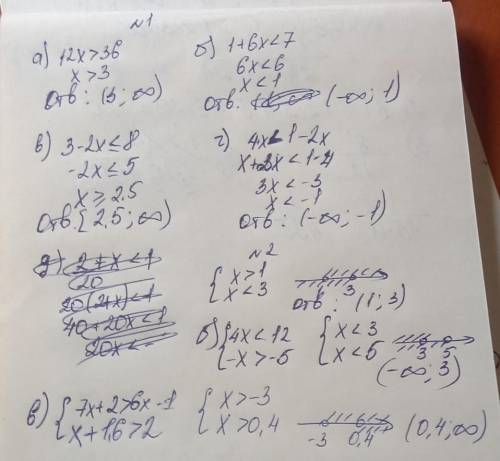 №1
а) 12x>36
x>3
Отв: (3; ∞)
б) 1+6x<7
6x<6
x<1
Отв. (-∞; 1)
в) 3-2x≤8
-2x≤5
x≥2,5
Отв. [2,5; ∞)
г) 4x<1-2x
x+2x<1-4
3x<-3
x<-1
Отв: (-∞; -1)
д) 2+x<1
20
20(2+x)<1
40+20x<1
20x<-
№2
{ x>1
{ x<3
3
Отв: (1; 3)
б) { 4x<12
{ -x>-5
{ x<3
{ x<5
3 5
(-∞; 3)
в) { 7x+2>6x-1
{ x+1,6>2
{ x>-3
{ x>0,4
-3 0,4
(0,4; ∞)